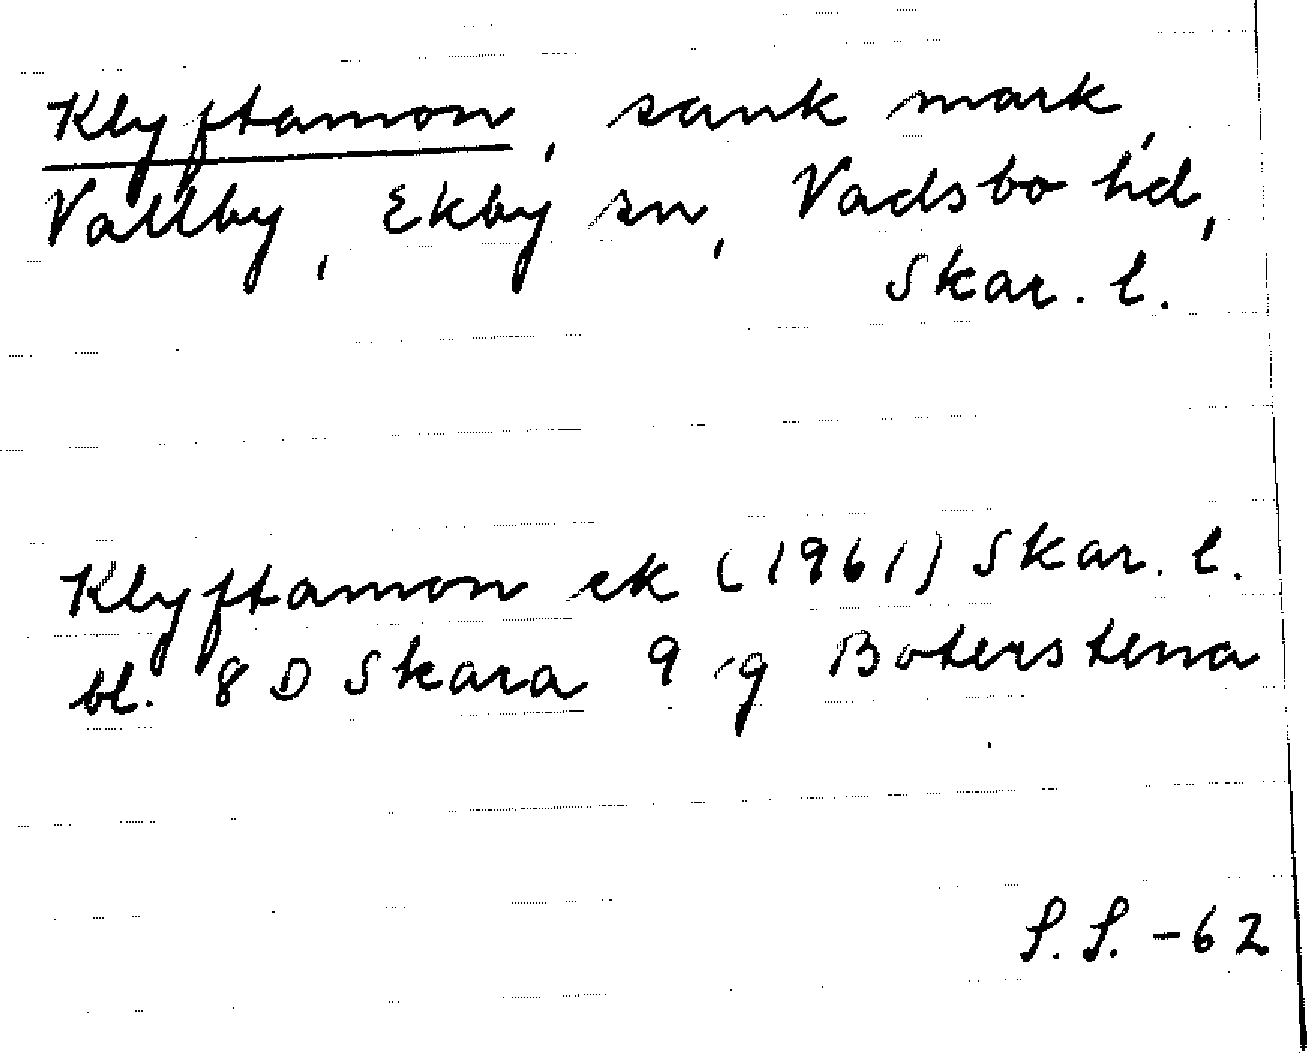 Klyftamon, sank mark,
Vallby, Ekby sn, Vadsbo hd,
Skar. l.
Klyftamon ek (1961) Skar. l.
bl. 8 D Skara 9 g Boterstena
S.S. -62